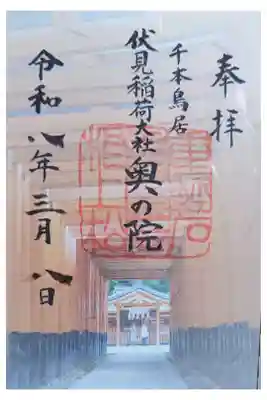 奉拝
千本鳥居
伏見稲荷大社
奥の院
令和八年三月八日